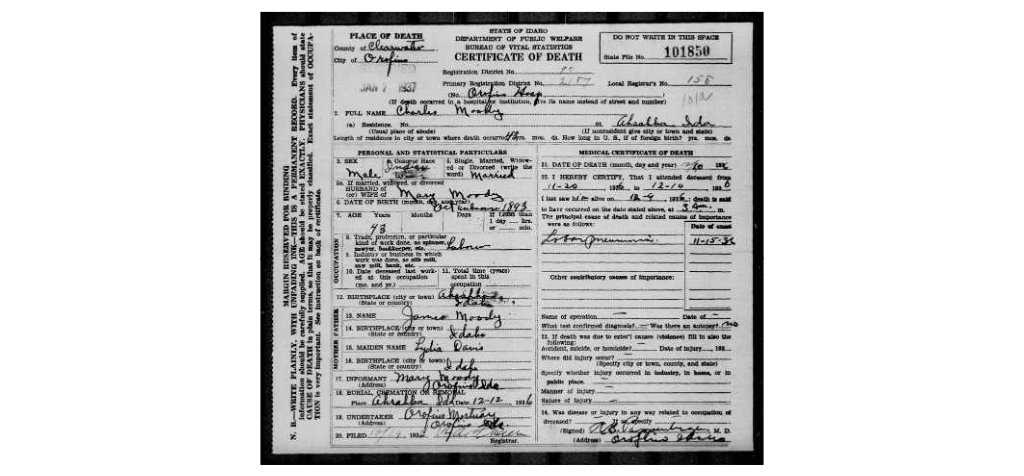 STATE OF IDAHO
DEPARTMENT OF PUBLIC WELFARE
BUREAU OF VITAL STATISTICS
CERTIFICATE OF DEATH
DO NOT WRITE IN THIS SPACE
State File No. 101850
PLACE OF DEATH
County of Clearwater
City of Orofino
JAN 7 1937
Registration District No.
Primary Registration District No. Local Registrar's No. 158
(No. Orofino Hosp
(If death occurred in a hospital or institution, give its name instead of street and number)
2. FULL NAME Charles Moody
(a) Residence. No. St. Ahsahka Ida
(Usual place of abode) (If nonresident give city or town and state)
Length of residence in city or town where death occurred 43 yrs. mos. ds. How long in U. S., if of foreign birth? yrs. mos. ds.
PERSONAL AND STATISTICAL PARTICULARS
3. SEX Male
4. Color or Race Indian
5. Single, Married, Widowed or Divorced (write the word) Married
5a. If married, widowed, or divorced
HUSBAND of
(or) WIFE of Mary Moody
6. DATE OF BIRTH (month, day, and year) 1893
7. AGE Years Months Days If LESS than 1 day hrs. or min.
43
OCCUPATION
8. Trade, profession, or particular kind of work done, as spinner, sawyer, bookkeeper, etc. Labour
9. Industry or business in which work was done, as silk mill, saw mill, bank, etc.
10. Date deceased last worked at this occupation (mo. and yr.)
11. Total time (years) spent in this occupation
12. BIRTHPLACE (city or town) Ahsahka
(State or country) Idaho
FATHER
13. NAME James Moody
14. BIRTHPLACE (city or town)
(State or country) Idaho
MOTHER
15. MAIDEN NAME Lydia Davis
16. BIRTHPLACE (city or town)
(State or country) Idaho
17. INFORMANT Mary Moody
(Address) Orofino Ida
18. BURIAL, CREMATION OR REMOVAL
Place Ahsahka Ida Date 12-12 1936
19. UNDERTAKER Orofino Mortuary
(Address) Orofino Ida.
20. FILED 193
Registrar.
MEDICAL CERTIFICATE OF DEATH
21. DATE OF DEATH (month, day and year) 12/10 193
22. I HEREBY CERTIFY, That I attended deceased from
11-20 1936 to 12-10 1936
I last saw him alive on 12-9 1936; death is said
to have occurred on the date stated above, at m.
The principal cause of death and related causes of importance were as follows:
Date of onset
Lobar pneumonia 11-15-36
Other contributory causes of importance:
Name of operation — Date of —
What test confirmed diagnosis? — Was there an autopsy? no
23. If death was due to external causes (violence) fill in also the following:
Accident, suicide, or homicide? — Date of injury 193
Where did injury occur? —
(Specify city or town, county, and state)
Specify whether injury occurred in industry, in home, or in public place. —
Manner of injury —
Nature of injury —
24. Was disease or injury in any way related to occupation of deceased? If so, specify
(Signed) M. D.
(Address) Orofino Idaho
MARGIN RESERVED FOR BINDING
N. B.—WRITE PLAINLY, WITH UNFADING INK—THIS IS A PERMANENT RECORD. Every item of
information should be carefully supplied. AGE should be stated EXACTLY. PHYSICIANS should state
CAUSE OF DEATH in plain terms, so that it may be properly classified. Exact statement of OCCUPA-
TION is very important. See instruction on back of certificate.